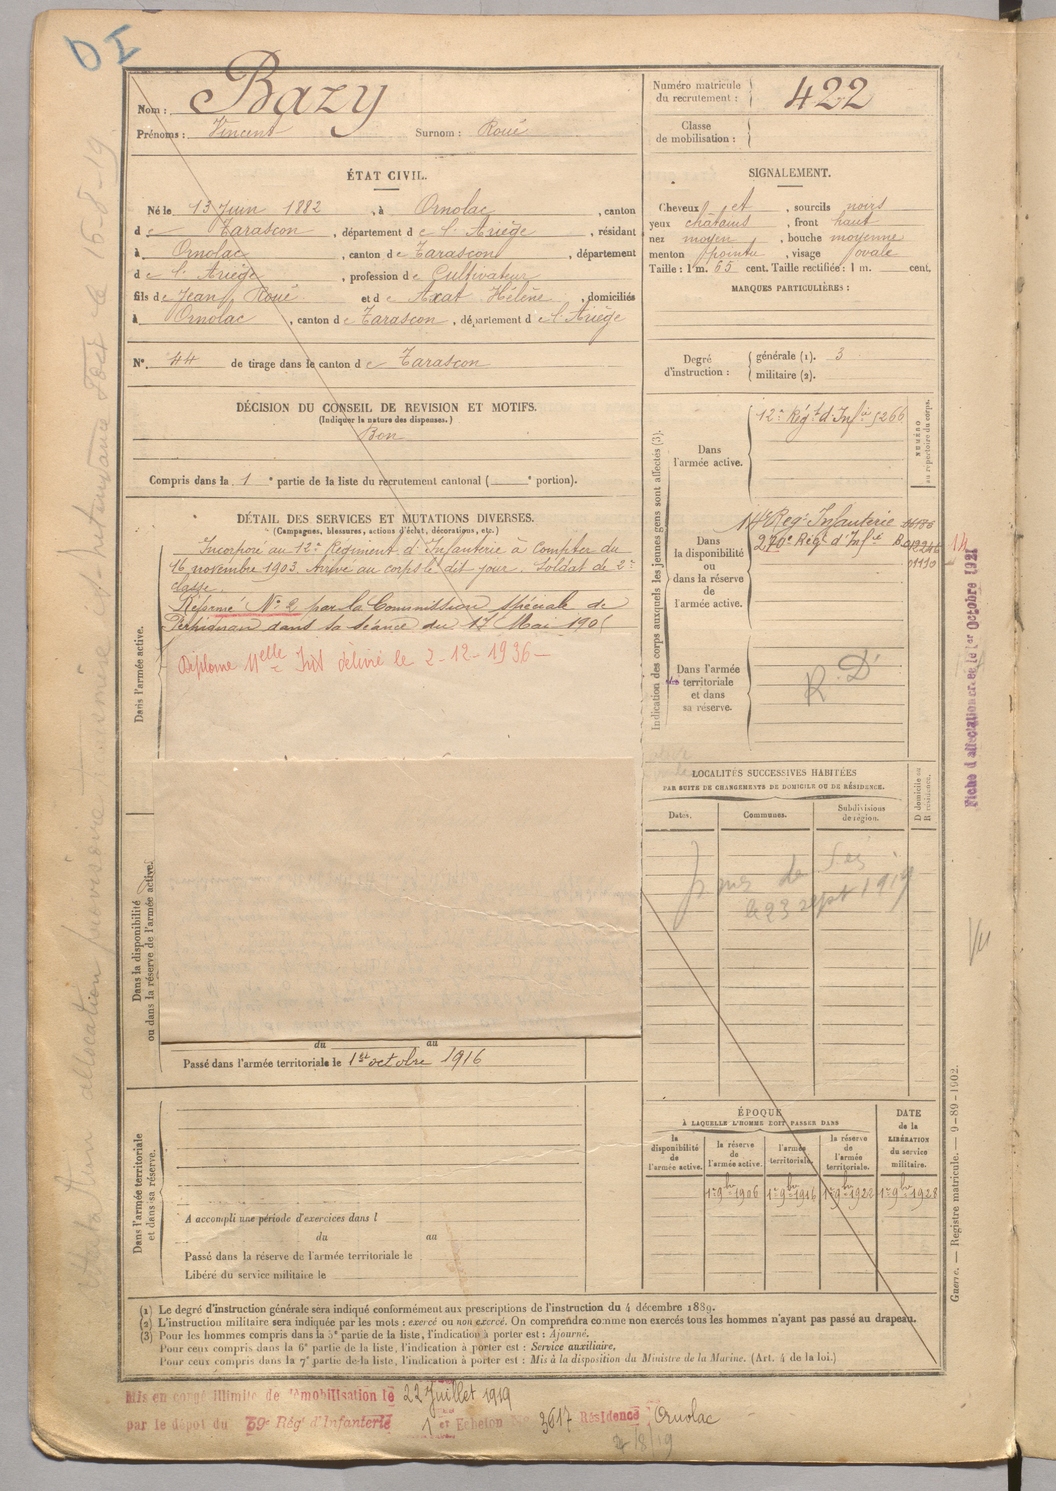 D I
Nom : Bazy
Prénoms : Vincent Surnom : Roué
Numéro matricule du recrutement : 422
Classe de mobilisation :
ÉTAT CIVIL.
Né le 13 Juin 1882, à Ornolac, canton
de Tarascon, département de l'Ariège, résidant
à Ornolac, canton de Tarascon, département
de l'Ariège, profession de Cultivateur
fils de Jean Roué et de Axat Hélène, domiciliés
à Ornolac, canton de Tarascon, département de l'Ariège
N° 44 de tirage dans le canton de Tarascon
DÉCISION DU CONSEIL DE REVISION ET MOTIFS.
(Indiquer la nature des dispenses.)
Bon
Compris dans la 1e partie de la liste du recrutement cantonal ( e portion).
SIGNALEMENT.
Cheveux et, sourcils noirs
yeux châtains, front haut
nez moyen, bouche moyenne
menton pointu, visage ovale
Taille : 1 m. 65 cent. Taille rectifiée : 1 m. cent.
MARQUES PARTICULIÈRES :
Degré d'instruction : générale (1). 3
militaire (2).
DÉTAIL DES SERVICES ET MUTATIONS DIVERSES.
(Campagnes, blessures, actions d'éclat, décorations, etc.)
Dans l'armée active.
Incorporé au 12e Régiment d'Infanterie à compter du
16 novembre 1903. Arrivé au corps le dit jour. Soldat de 2e
classe.
Réformé N° 2 par la Commission spéciale de
Perpignan dans sa séance du 17 Mai 190
Diplome Melle délivré le 2-12-1936
Dans la disponibilité
ou dans la réserve de l'armée active.
du au
Passé dans l'armée territoriale le 1er octobre 1916
Dans l'armée territoriale
et dans sa réserve.
A accompli une période d'exercices dans l
du au
Passé dans la réserve de l'armée territoriale le
Libéré du service militaire le
Indication des corps auxquels les jeunes gens sont affectés (3).
NUMÉRO
au répertoire du corps.
Dans
l'armée active.
12e Régt d'Infie 5266
Dans
la disponibilité
ou dans la réserve
de
l'armée active.
14e Régt Infanterie
270e Régt d'Infie
01110
Dans l'armée
territoriale
et dans
sa réserve.
R. D
LOCALITÉS SUCCESSIVES HABITÉES
PAR SUITE DE CHANGEMENTS DE DOMICILE OU DE RÉSIDENCE.
Dates.
Communes.
Subdivisions
de région.
D domicile ou
R résidence.
le 23 sept 1919
ÉPOQUE
À LAQUELLE L'HOMME DOIT PASSER DANS
la
disponibilité
de
l'armée active.
la réserve
de
l'armée active.
l'armée
territoriale.
la réserve
de
l'armée
territoriale.
DATE
de la
LIBÉRATION
du service
militaire.
1er 9bre 1906 1er 9bre 1916 1er 9bre 1922 1er 9bre 1928
Fiche d'affectation créée le 1er Octobre 1921
Vu
Guerre. — Registre matricule. — 9-89-1902.
(1) Le degré d'instruction générale sera indiqué conformément aux prescriptions de l'instruction du 4 décembre 1889.
(2) L'instruction militaire sera indiquée par les mots : exercé ou non exercé. On comprendra comme non exercés tous les hommes n'ayant pas passé au drapeau.
(3) Pour les hommes compris dans la 5e partie de la liste, l'indication à porter est : Ajourné.
Pour ceux compris dans la 6e partie de la liste, l'indication à porter est : Service auxiliaire.
Pour ceux compris dans la 7e partie de la liste, l'indication à porter est : Mis à la disposition du Ministre de la Marine. (Art. 4 de la loi.)
Mis en congé illimité de démobilisation le 22 Juillet 1919
par le dépôt du 59e Régt d'Infanterie 1er Echelon No 3617 Résidence Ornolac
/8/19